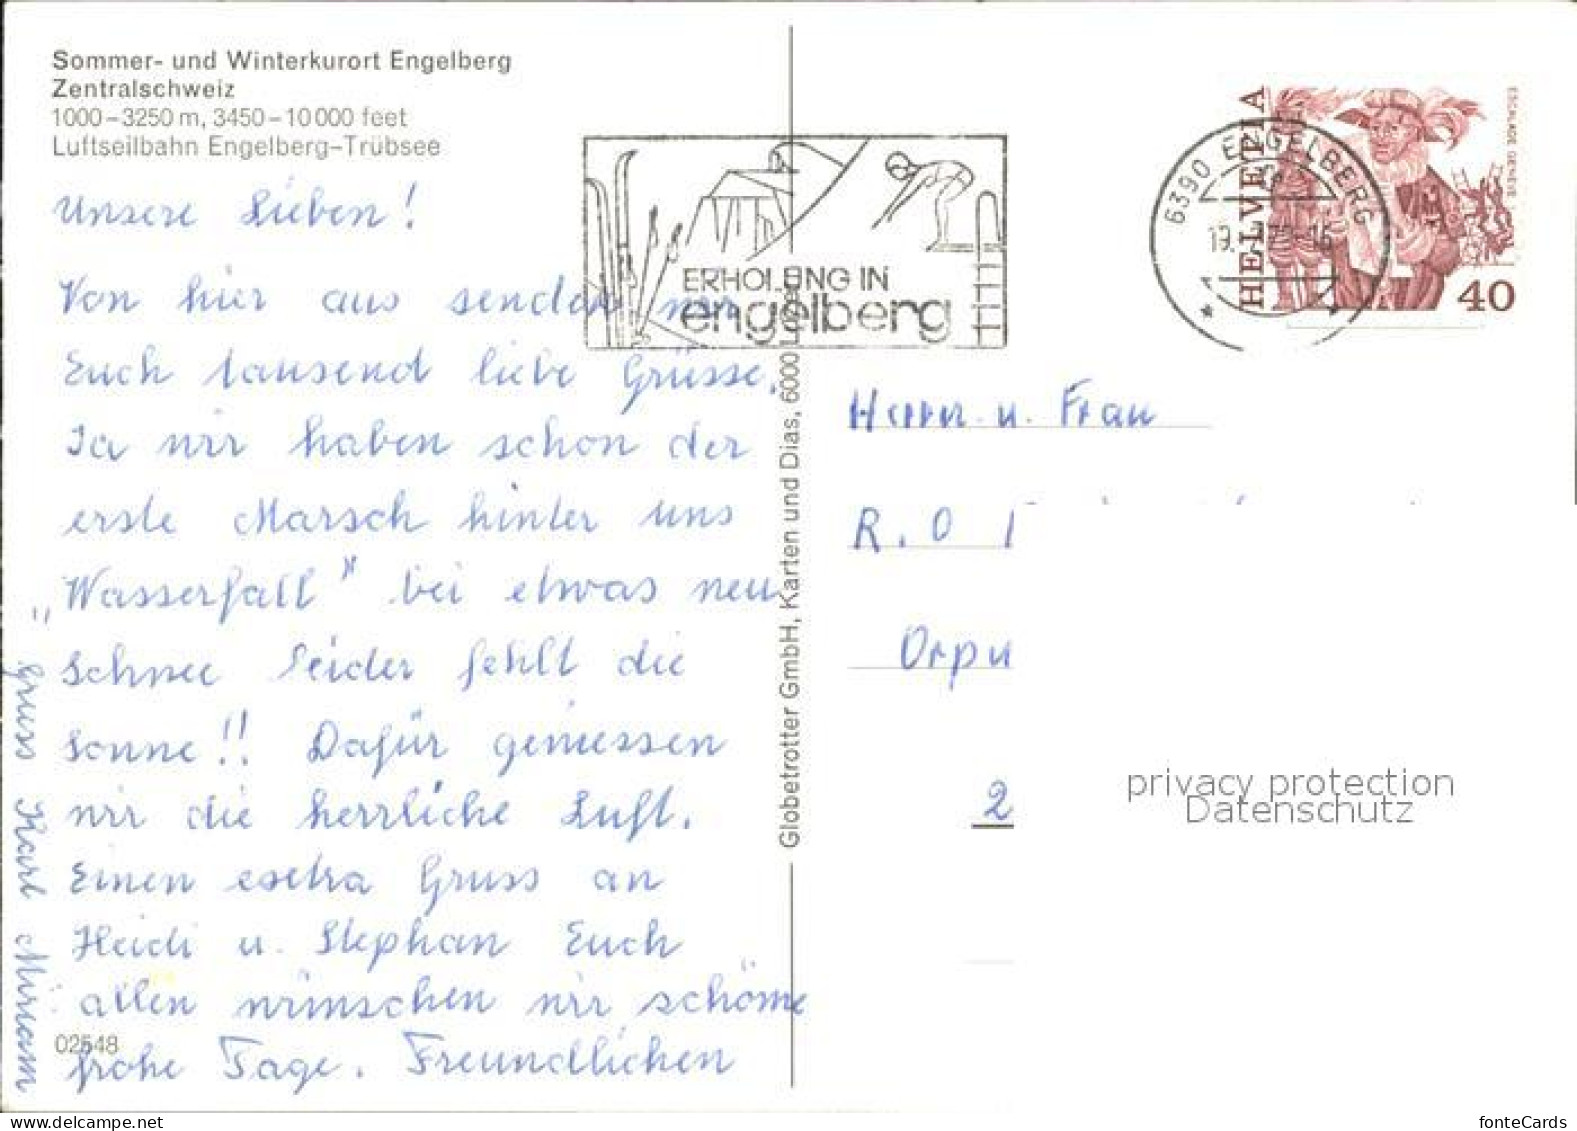 Sommer- und Winterkurort Engelberg
Zentralschweiz
1000-3250 m, 3450-10000 feet
Luftseilbahn Engelberg-Trübsee
Unsere Lieben!
Von hier aus senden wir
Euch tausend liebe Grüsse.
Ja wir haben schon der
erste Marsch hinter uns
"Wasserfall" bei etwas neu
Schnee leider fehlt die
Sonne!! Dafür geniessen
wir die herrliche Luft.
Einen extra Gruss an
Heidi u. Stephan Euch
allen wünschen wir schöne
frohe Tage. Freundlichen
Gruss Karl Miriam
02548
Globetrotter GmbH, Karten und Dias, 6000
ERHOLUNG IN
engelberg
6390 ENGELBERG
19.
HELVETIA
ESCALADE GENÈVE
40
Herrn u. Frau
R. O
Orpu
2
privacy protection
Datenschutz
fonteCards